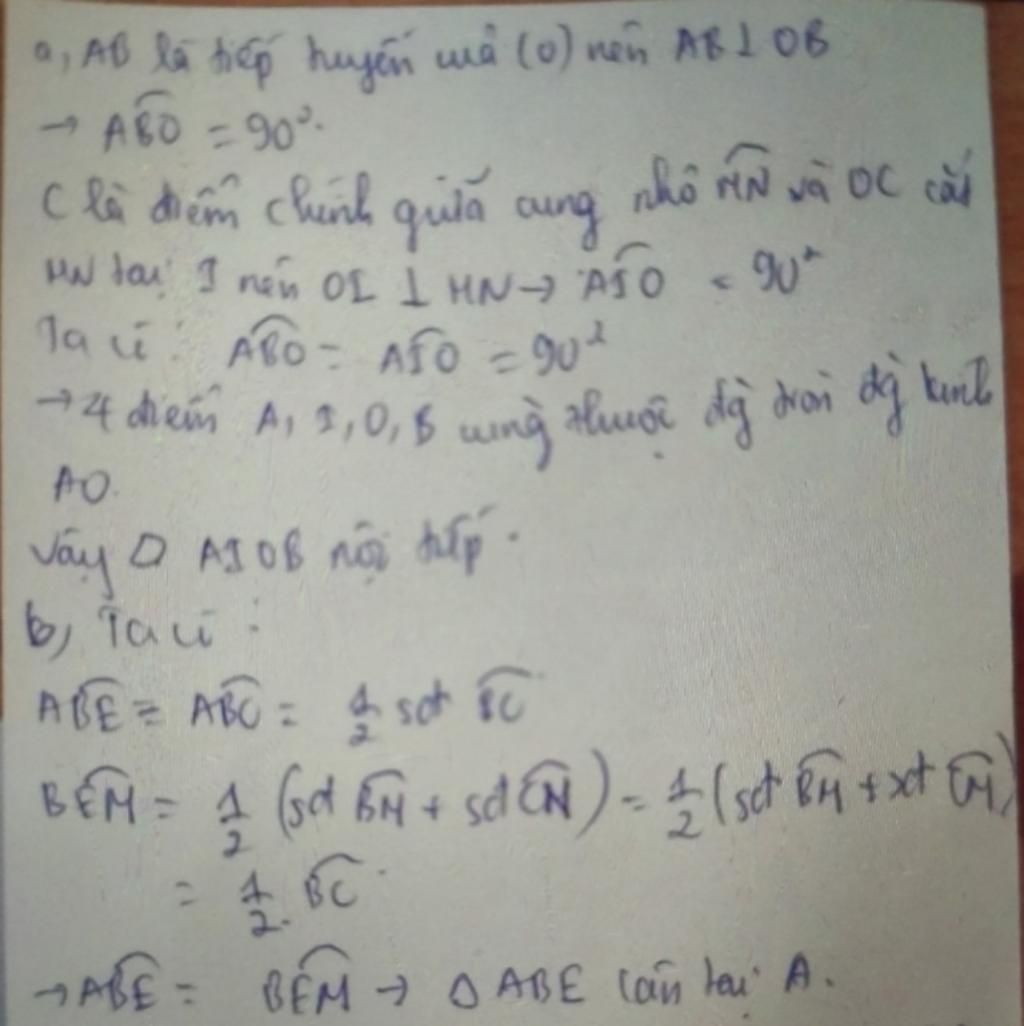 a, AB là tiếp tuyến của (O) nên AB ⊥ OB
→ ABO = 90°.
C là điểm chính giữa cung nhỏ MN và OC cắt
MN tại I nên OI ⊥ MN → AIO = 90°
Ta có: ABO = AIO = 90°
→ 4 điểm A, I, O, B cùng thuộc đg tròn đg kính
AO.
Vậy □ AIOB nội tiếp.
b, Ta có:
ABE = ABC = 1/2 sđ BC
BEM = 1/2 (sđ BM + sđ CN) = 1/2 (sđ BM + sđ CM)
= 1/2. BC
→ ABE = BEM → Δ ABE cân tại A.